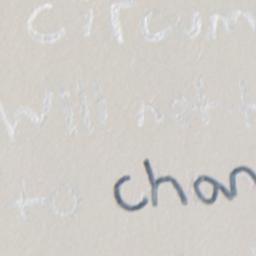 circum
will not t
to chan